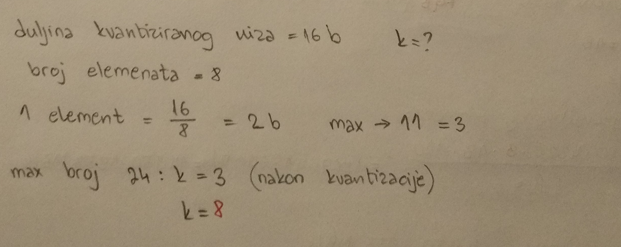 duljina kvantiziranog niza = 16 b k = ?
broj elemenata = 8
1 element = 16/8 = 2 b max → 11 = 3
max broj 24 : k = 3 (nakon kvantizacije)
k = 8